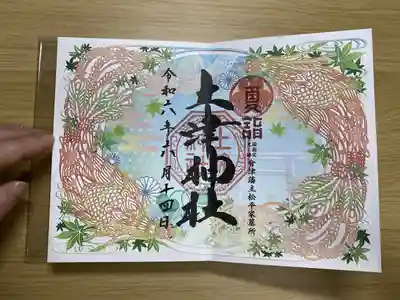 夏詣
会津藩主松平家墓所
土津神社
令和六年六月十四日